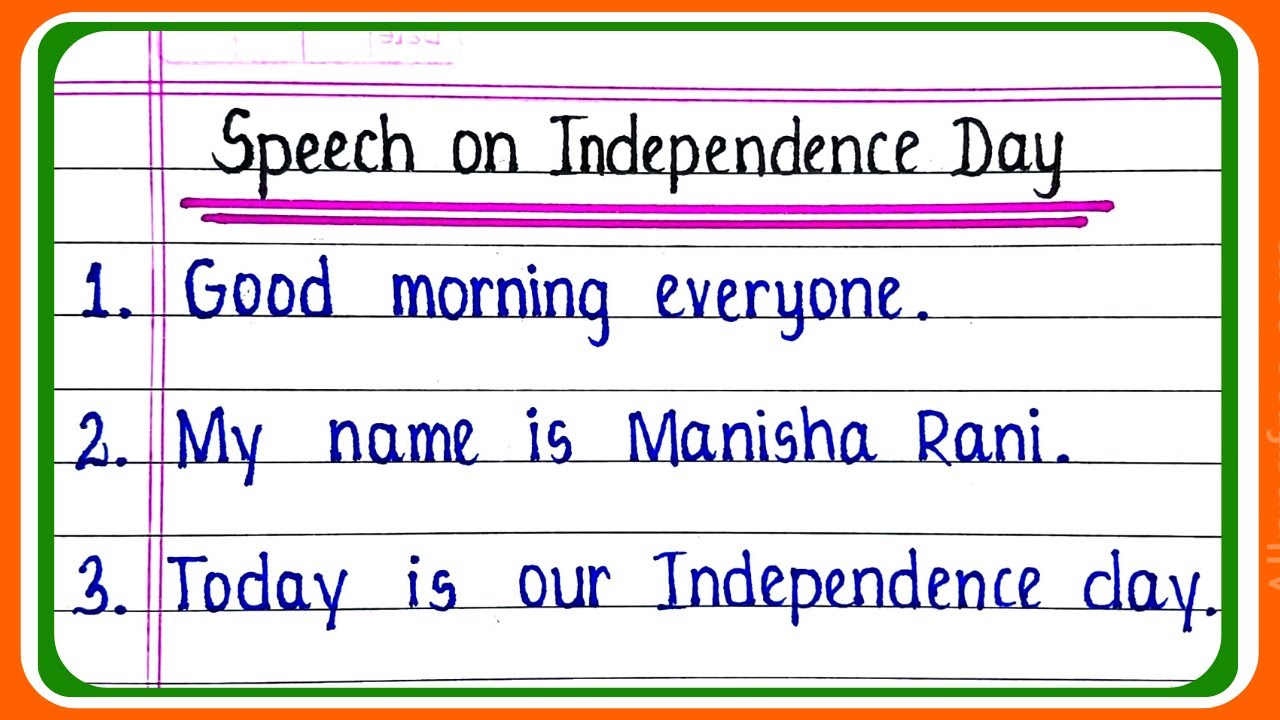 Speech on Independence Day
1. Good morning everyone.
2. My name is Manisha Rani.
3. Today is our Independence day.